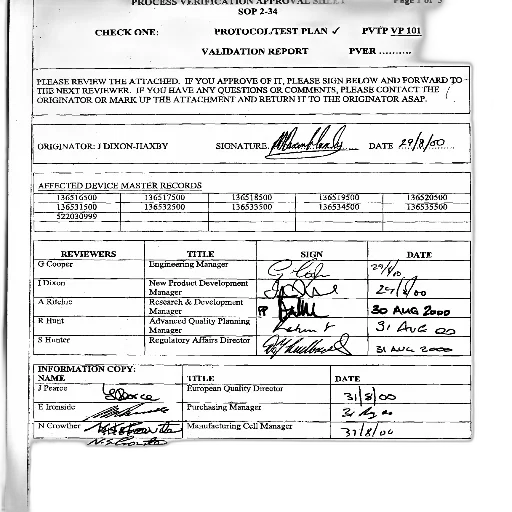 PROCESS VERIFICATION APPROVAL SHEET Page 1 of 3
SOP 2-34
CHECK ONE: PROTOCOL/TEST PLAN ✓ PVTP VP 101
VALIDATION REPORT PVER ..........
PLEASE REVIEW THE ATTACHED. IF YOU APPROVE OF IT, PLEASE SIGN BELOW AND FORWARD TO
THE NEXT REVIEWER. IF YOU HAVE ANY QUESTIONS OR COMMENTS, PLEASE CONTACT THE
ORIGINATOR OR MARK UP THE ATTACHMENT AND RETURN IT TO THE ORIGINATOR ASAP.
ORIGINATOR: J DIXON-HAXBY SIGNATURE DATE 29/8/00
AFFECTED DEVICE MASTER RECORDS
136516500 136517500 136518500 136519500 136520500
136531500 136532500 136533500 136534500 136535500
522030999
REVIEWERS TITLE SIGN DATE
G Cooper Engineering Manager 29/8/00
J Dixon New Product Development Manager 29/8/00
A Ritchie Research & Development Manager PP 30 AUG 2000
R Hunt Advanced Quality Planning Manager 31 AUG 00
S Hunter Regulatory Affairs Director 31 AUG 2000
INFORMATION COPY:
NAME TITLE DATE
J Pearce European Quality Director 31/8/00
E Ironside Purchasing Manager
N Crowther Manufacturing Cell Manager 31/8/00
N.S. Crowther